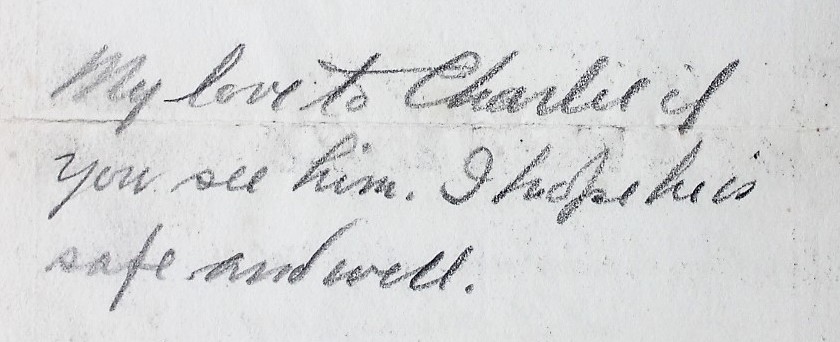 My love to Charlie if
you see him. I hope he is
safe and well.